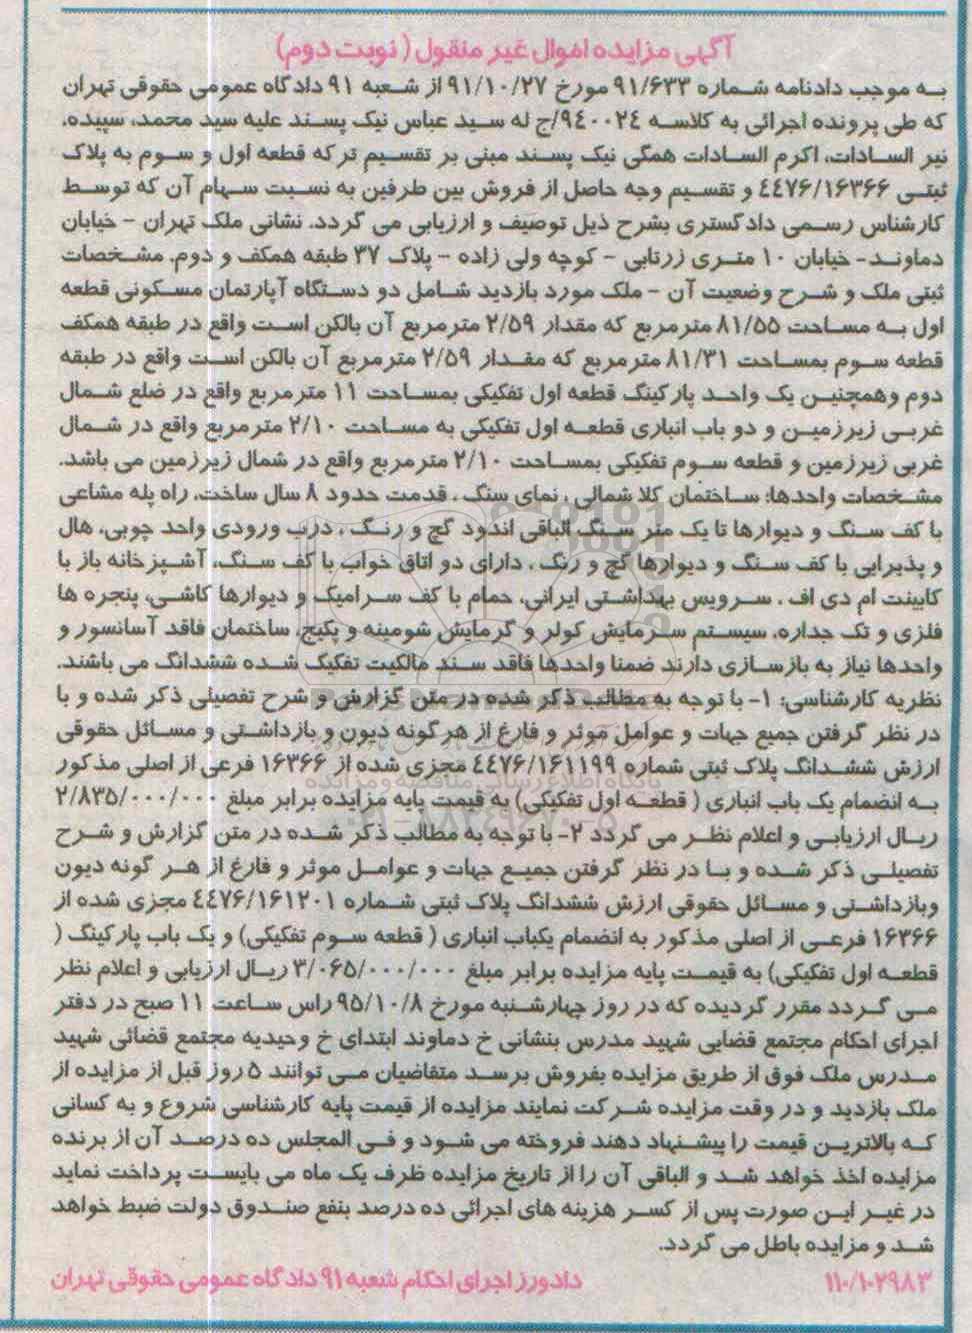 آگهی مزایده اموال غیر منقول ( نوبت دوم)
به موجب دادنامه شماره ۹۱/۶۳۳ مورخ ۹۱/۱۰/۲۷ از شعبه ۹۱ دادگاه عمومی حقوقی تهران
که طی پرونده اجرائی به کلاسه ۹٤۰۰۲٤/ج له سید عباس نیک پسند علیه سید محمد، سپیده،
نیر السادات، اکرم السادات همگی نیک پسند مبنی بر تقسیم ترکه قطعه اول و سوم به پلاک
ثبتی ٤٤۷۶/۱۶۳۶۶ و تقسیم وجه حاصل از فروش بین طرفین به نسبت سهام آن که توسط
کارشناس رسمی دادگستری بشرح ذیل توصیف و ارزیابی می گردد. نشانی ملک تهران - خیابان
دماوند- خیابان ۱۰ متری زرتابی - کوچه ولی زاده - پلاک ۳۷ طبقه همکف و دوم. مشخصات
ثبتی ملک و شرح وضعیت آن - ملک مورد بازدید شامل دو دستگاه آپارتمان مسکونی قطعه
اول به مساحت ۸۱/۵۵ مترمربع که مقدار ۲/۵۹ مترمربع آن بالکن است واقع در طبقه همکف
قطعه سوم بمساحت ۸۱/۳۱ مترمربع که مقدار ۲/۵۹ مترمربع آن بالکن است واقع در طبقه
دوم وهمچنین یک واحد پارکینگ قطعه اول تفکیکی بمساحت ۱۱ مترمربع واقع در ضلع شمال
غربی زیرزمین و دو باب انباری قطعه اول تفکیکی به مساحت ۲/۱۰ مترمربع واقع در شمال
غربی زیرزمین و قطعه سوم تفکیکی بمساحت ۲/۱۰ مترمربع واقع در شمال زیرزمین می باشد.
مشخصات واحدها: ساختمان کلا شمالی ، نمای سنگ ، قدمت حدود ۸ سال ساخت، راه پله مشاعی
با کف سنگ و دیوارها تا یک متر سنگ الباقی اندود گچ و رنگ ، درب ورودی واحد چوبی، هال
و پذیرایی با کف سنگ و دیوارها گچ و رنگ ، دارای دو اتاق خواب با کف سنگ، آشپزخانه باز با
کابینت ام دی اف ، سرویس بهداشتی ایرانی، حمام با کف سرامیک و دیوارها کاشی، پنجره ها
فلزی و تک جداره، سیستم سرمایش کولر و گرمایش شومینه و پکیج، ساختمان فاقد آسانسور و
واحدها نیاز به بازسازی دارند ضمنا واحدها فاقد سند مالکیت تفکیک شده ششدانگ می باشند.
نظریه کارشناسی: ۱- با توجه به مطالب ذکر شده در متن گزارش و شرح تفصیلی ذکر شده و با
در نظر گرفتن جمیع جهات و عوامل موثر و فارغ از هرگونه دیون و بازداشتی و مسائل حقوقی
ارزش ششدانگ پلاک ثبتی شماره ٤٤۷۶/۱۶۱۱۹۹ مجزی شده از ۱۶۳۶۶ فرعی از اصلی مذکور
به انضمام یک باب انباری ( قطعه اول تفکیکی) به قیمت پایه مزایده برابر مبلغ ۲/۸۳۵/۰۰۰/۰۰۰
ریال ارزیابی و اعلام نظر می گردد ۲- با توجه به مطالب ذکر شده در متن گزارش و شرح
تفصیلی ذکر شده و با در نظر گرفتن جمیع جهات و عوامل موثر و فارغ از هر گونه دیون
وبازداشتی و مسائل حقوقی ارزش ششدانگ پلاک ثبتی شماره ٤٤۷۶/۱۶۱۲۰۱ مجزی شده از
۱۶۳۶۶ فرعی از اصلی مذکور به انضمام یکباب انباری ( قطعه سوم تفکیکی) و یک باب پارکینگ (
قطعه اول تفکیکی) به قیمت پایه مزایده برابر مبلغ ۳/۰۶۵/۰۰۰/۰۰۰ ریال ارزیابی و اعلام نظر
می گردد مقرر گردیده که در روز چهارشنبه مورخ ۹۵/۱۰/۸ راس ساعت ۱۱ صبح در دفتر
اجرای احکام مجتمع قضایی شهید مدرس بنشانی خ دماوند ابتدای خ وحیدیه مجتمع قضائی شهید
مدرس ملک فوق از طریق مزایده بفروش برسد متقاضیان می توانند ۵ روز قبل از مزایده از
ملک بازدید و در وقت مزایده شرکت نمایند مزایده از قیمت پایه کارشناسی شروع و به کسانی
که بالاترین قیمت را پیشنهاد دهند فروخته می شود و فی المجلس ده درصد آن از برنده
مزایده اخذ خواهد شد و الباقی آن را از تاریخ مزایده ظرف یک ماه می بایست پرداخت نماید
در غیر این صورت پس از کسر هزینه های اجرائی ده درصد بنفع صندوق دولت ضبط خواهد
شد و مزایده باطل می گردد.
۱۱۰/۱۰۲۹۸۳ دادورز اجرای احکام شعبه ۹۱ دادگاه عمومی حقوقی تهران